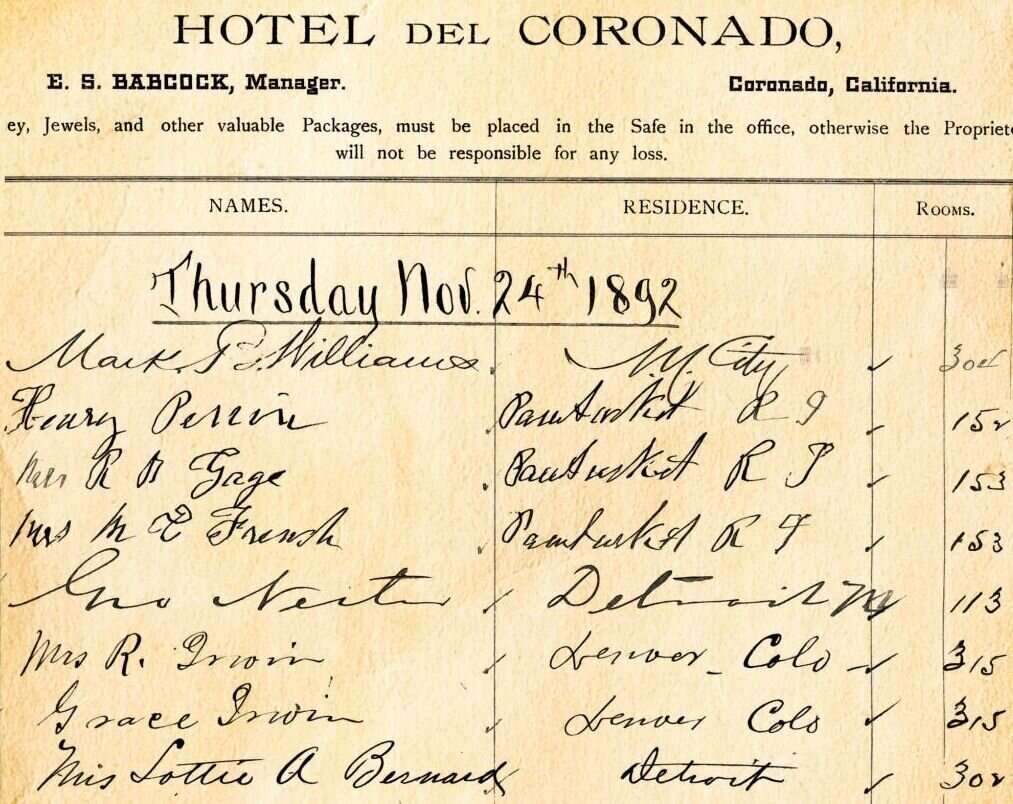 HOTEL DEL CORONADO,
E. S. BABCOCK, Manager. Coronado, California.
ey, Jewels, and other valuable Packages, must be placed in the Safe in the office, otherwise the Propriet
will not be responsible for any loss.
NAMES. RESIDENCE. ROOMS.
Thursday Nov. 24th 1892
Mark B. Williams N.Y. City
Henry Perrin Pawtucket R I 152
R Gage Pawtucket R I 153
Mrs M E French Pawtucket R I 153
Geo Nester Detroit M 113
Mrs R. Irwin Denver Colo 315
Grace Irwin Denver Colo 315
Mrs Lottie A Bernard Detroit 302